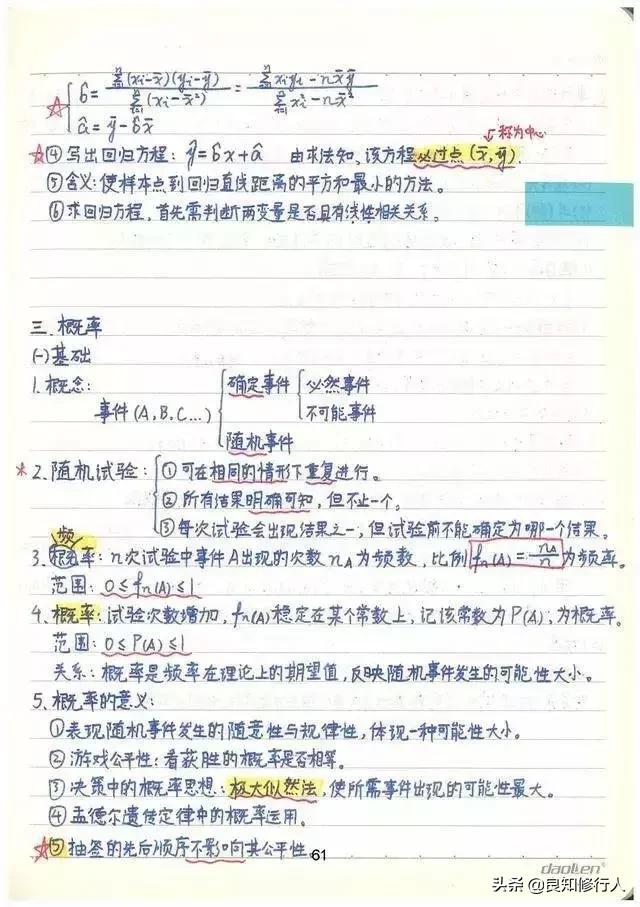 b̂ = Σⁿᵢ₌₁(xᵢ-x̄)(yᵢ-ȳ) / Σⁿᵢ₌₁(xᵢ-x̄²) = Σⁿᵢ₌₁xᵢyᵢ-nx̄ȳ / Σⁿᵢ₌₁xᵢ²-nx̄²
â = ȳ - b̂x̄
↓称为中心
☆④写出回归方程: ŷ=b̂x+â 由求法知、该方程必过点(x̄,ȳ).
⑤含义:使样本点到回归直线距离的平方和最小的方法。
⑥求回归方程,首先需判断两变量是否具有线性相关关系。
三.概率
(一)基础
1.概念:
事件(A,B,C...)
确定事件
必然事件
不可能事件
随机事件
*2.随机试验:
①可在相同的情形下重复进行。
②所有结果明确可知,但不止一个。
③每次试验会出现结果之一,但试验前不能确定为哪一个结果。
频
3.概率:n次试验中事件A出现的次数nA为频数,比例fn(A)=nA/n为频率。
范围:0≤fn(A)≤1
4.概率:试验次数增加,fn(A)稳定在某个常数上,记该常数为P(A),为概率。
范围:0≤P(A)≤1
关系:概率是频率在理论上的期望值,反映随机事件发生的可能性大小。
5.概率的意义:
①表现随机事件发生的随意性与规律性,体现一种可能性大小。
②游戏公平性:看获胜的概率是否相等。
③决策中的概率思想:极大似然法,使所需事件出现的可能性最大。
④孟德尔遗传定律中的概率运用。
☆⑤抽签的先后顺序不影响其公平性。
61
daolien
头条 @良知修行人